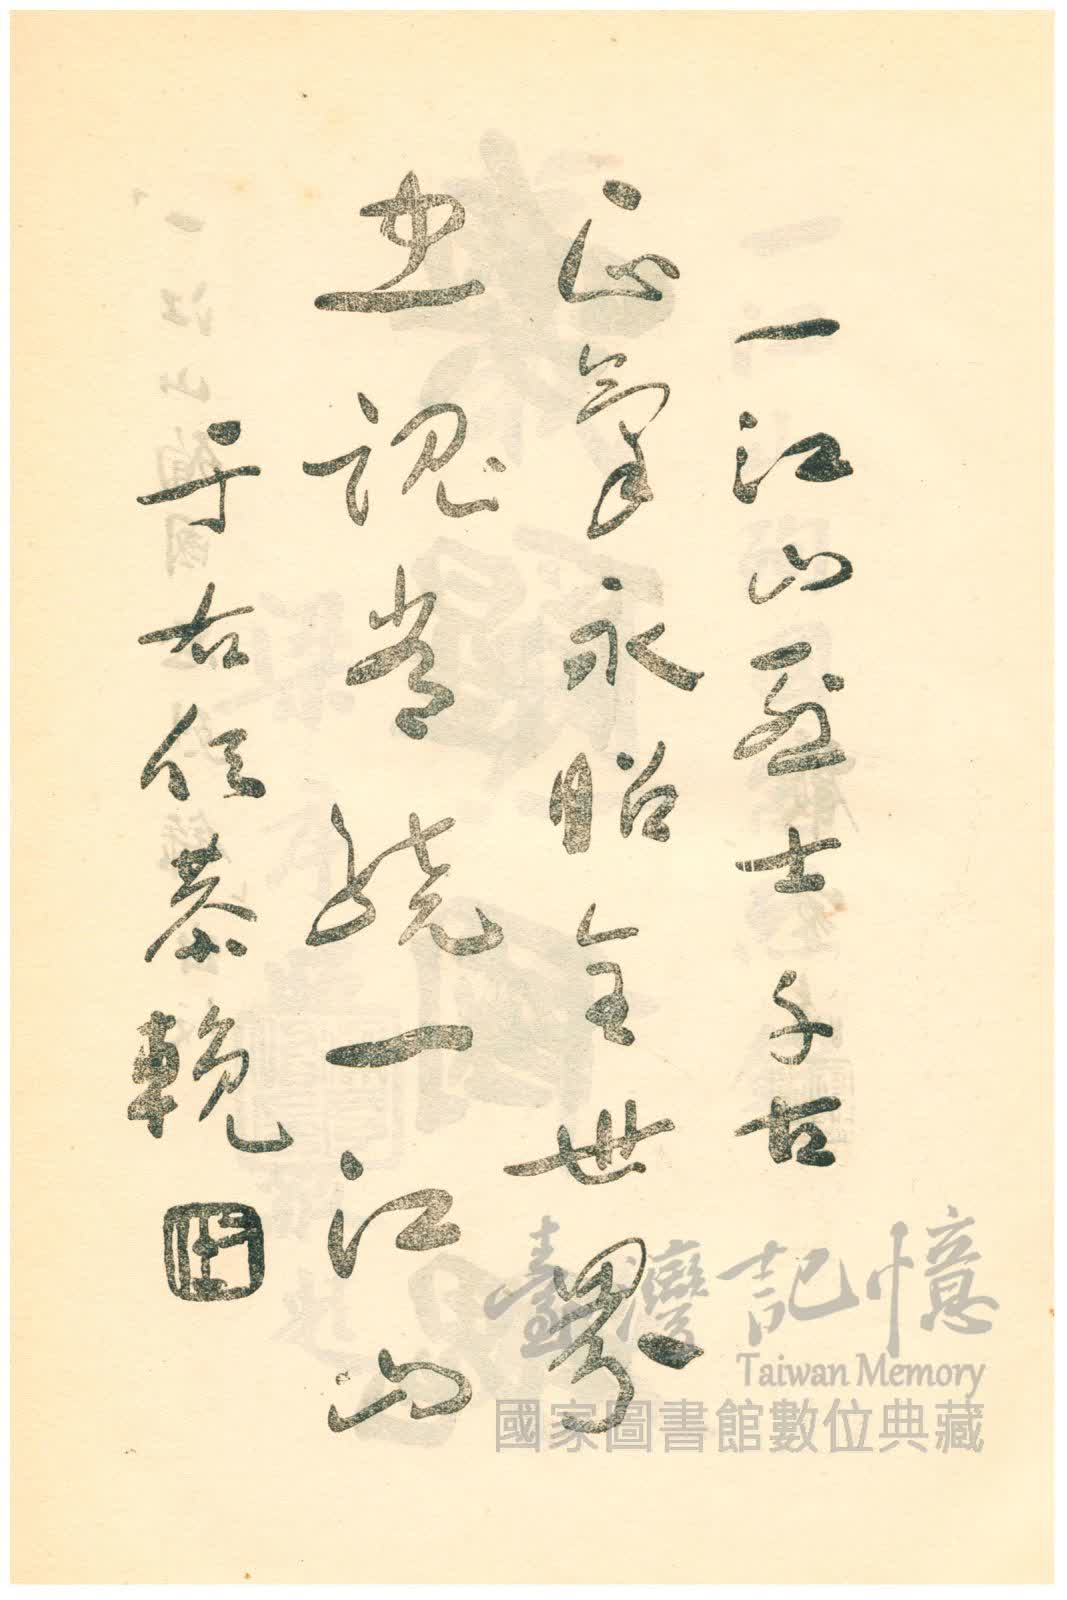 一江山烈士千古
正氣永昭全世界
忠魂常繞一江山
于右任恭輓
臺灣記憶
Taiwan Memory
國家圖書館數位典藏